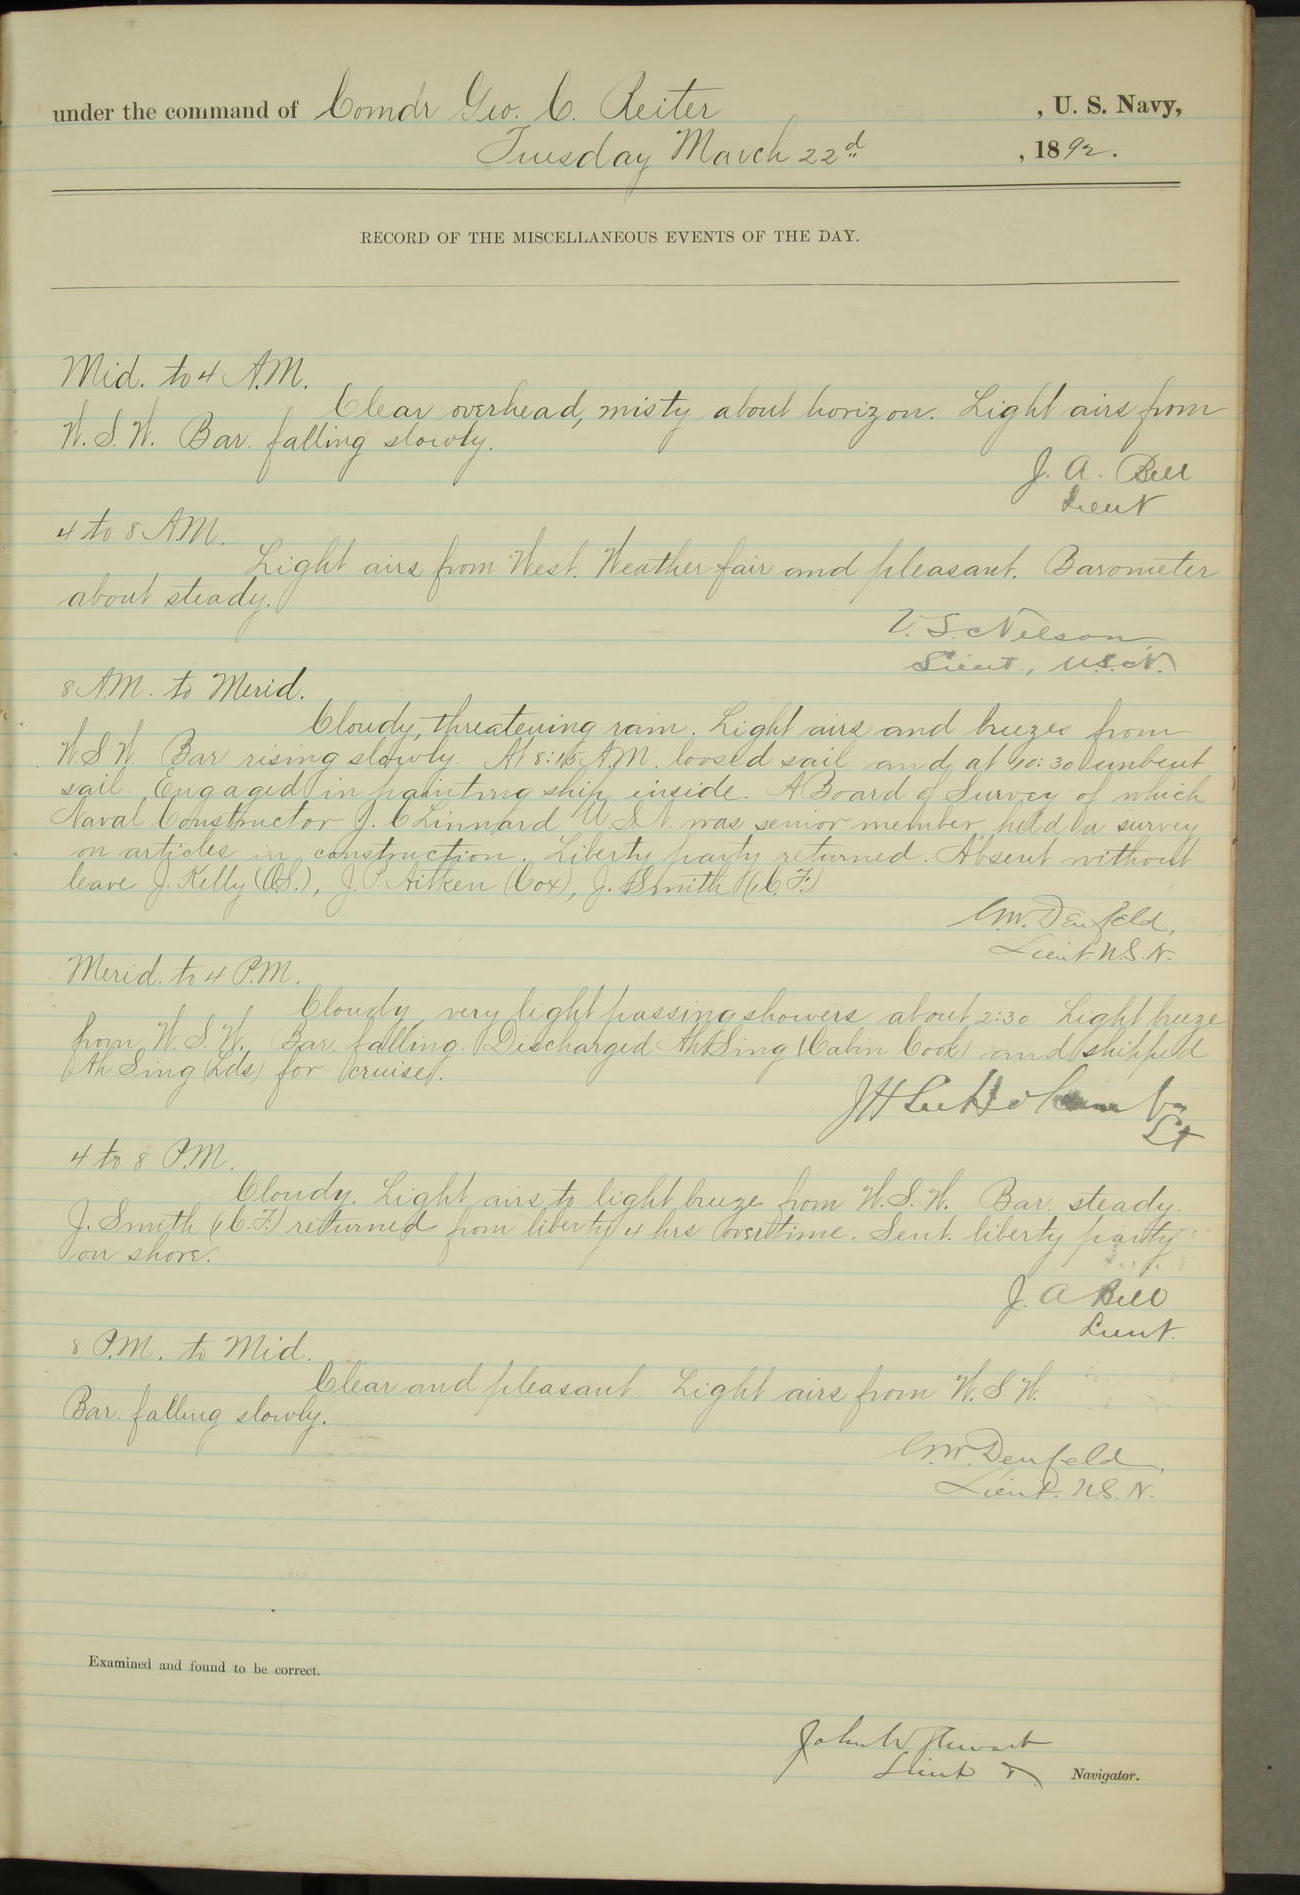 under the command of Comdr Geo. C. Reiter , U. S. Navy,
Tuesday March 22d , 1892.
RECORD OF THE MISCELLANEOUS EVENTS OF THE DAY.
Mid. to 4 A.M.
Clear overhead, misty about horizon. Light airs from
W.S.W. Bar. falling slowly.
J. A. Bell
Lieut
4 to 8 A.M.
Light airs from West. Weather fair and pleasant. Barometer
about steady.
V. S. Nelson,
Lieut., U.S.N.
8 A.M. to Merid.
Cloudy, threatening rain. Light airs and breezes from
W S W. Bar rising slowly. At 8:15 A.M. loosed sail and at 10:30 unbent
sail. Engaged in painting ship inside. A Board of Survey of which
Naval Constructor J. C Linnard U.S.N. was senior member held a survey
on articles in construction. Liberty party returned. Absent without
leave J. Kelly (O.S.), J. P. Aitken (Cox), J. Smith (1 C. F.)
C.W. Denfeld,
Lieut U.S.N.
Merid. to 4 P.M.
Cloudy, very light passing showers about 2:30 Light breeze
from W. S. W. Bar. falling. Discharged Ah Sing (Cabin Cook) and shipped
Ah Sing (Lds) for cruise.
Lt
4 to 8 P.M.
Cloudy. Light airs to light breeze from W. S. W. Bar. steady.
J. Smith (1 C. F.) returned from liberty 4 hrs overtime. Sent liberty party
on shore.
J. A Bell
Lieut.
8 P.M. to Mid.
Clear and pleasant. Light airs from W. S. W.
Bar. falling slowly.
C.W. Denfeld,
Lieut. U.S. N.
Examined and found to be correct.
John W Stewart
Lieut & Navigator.